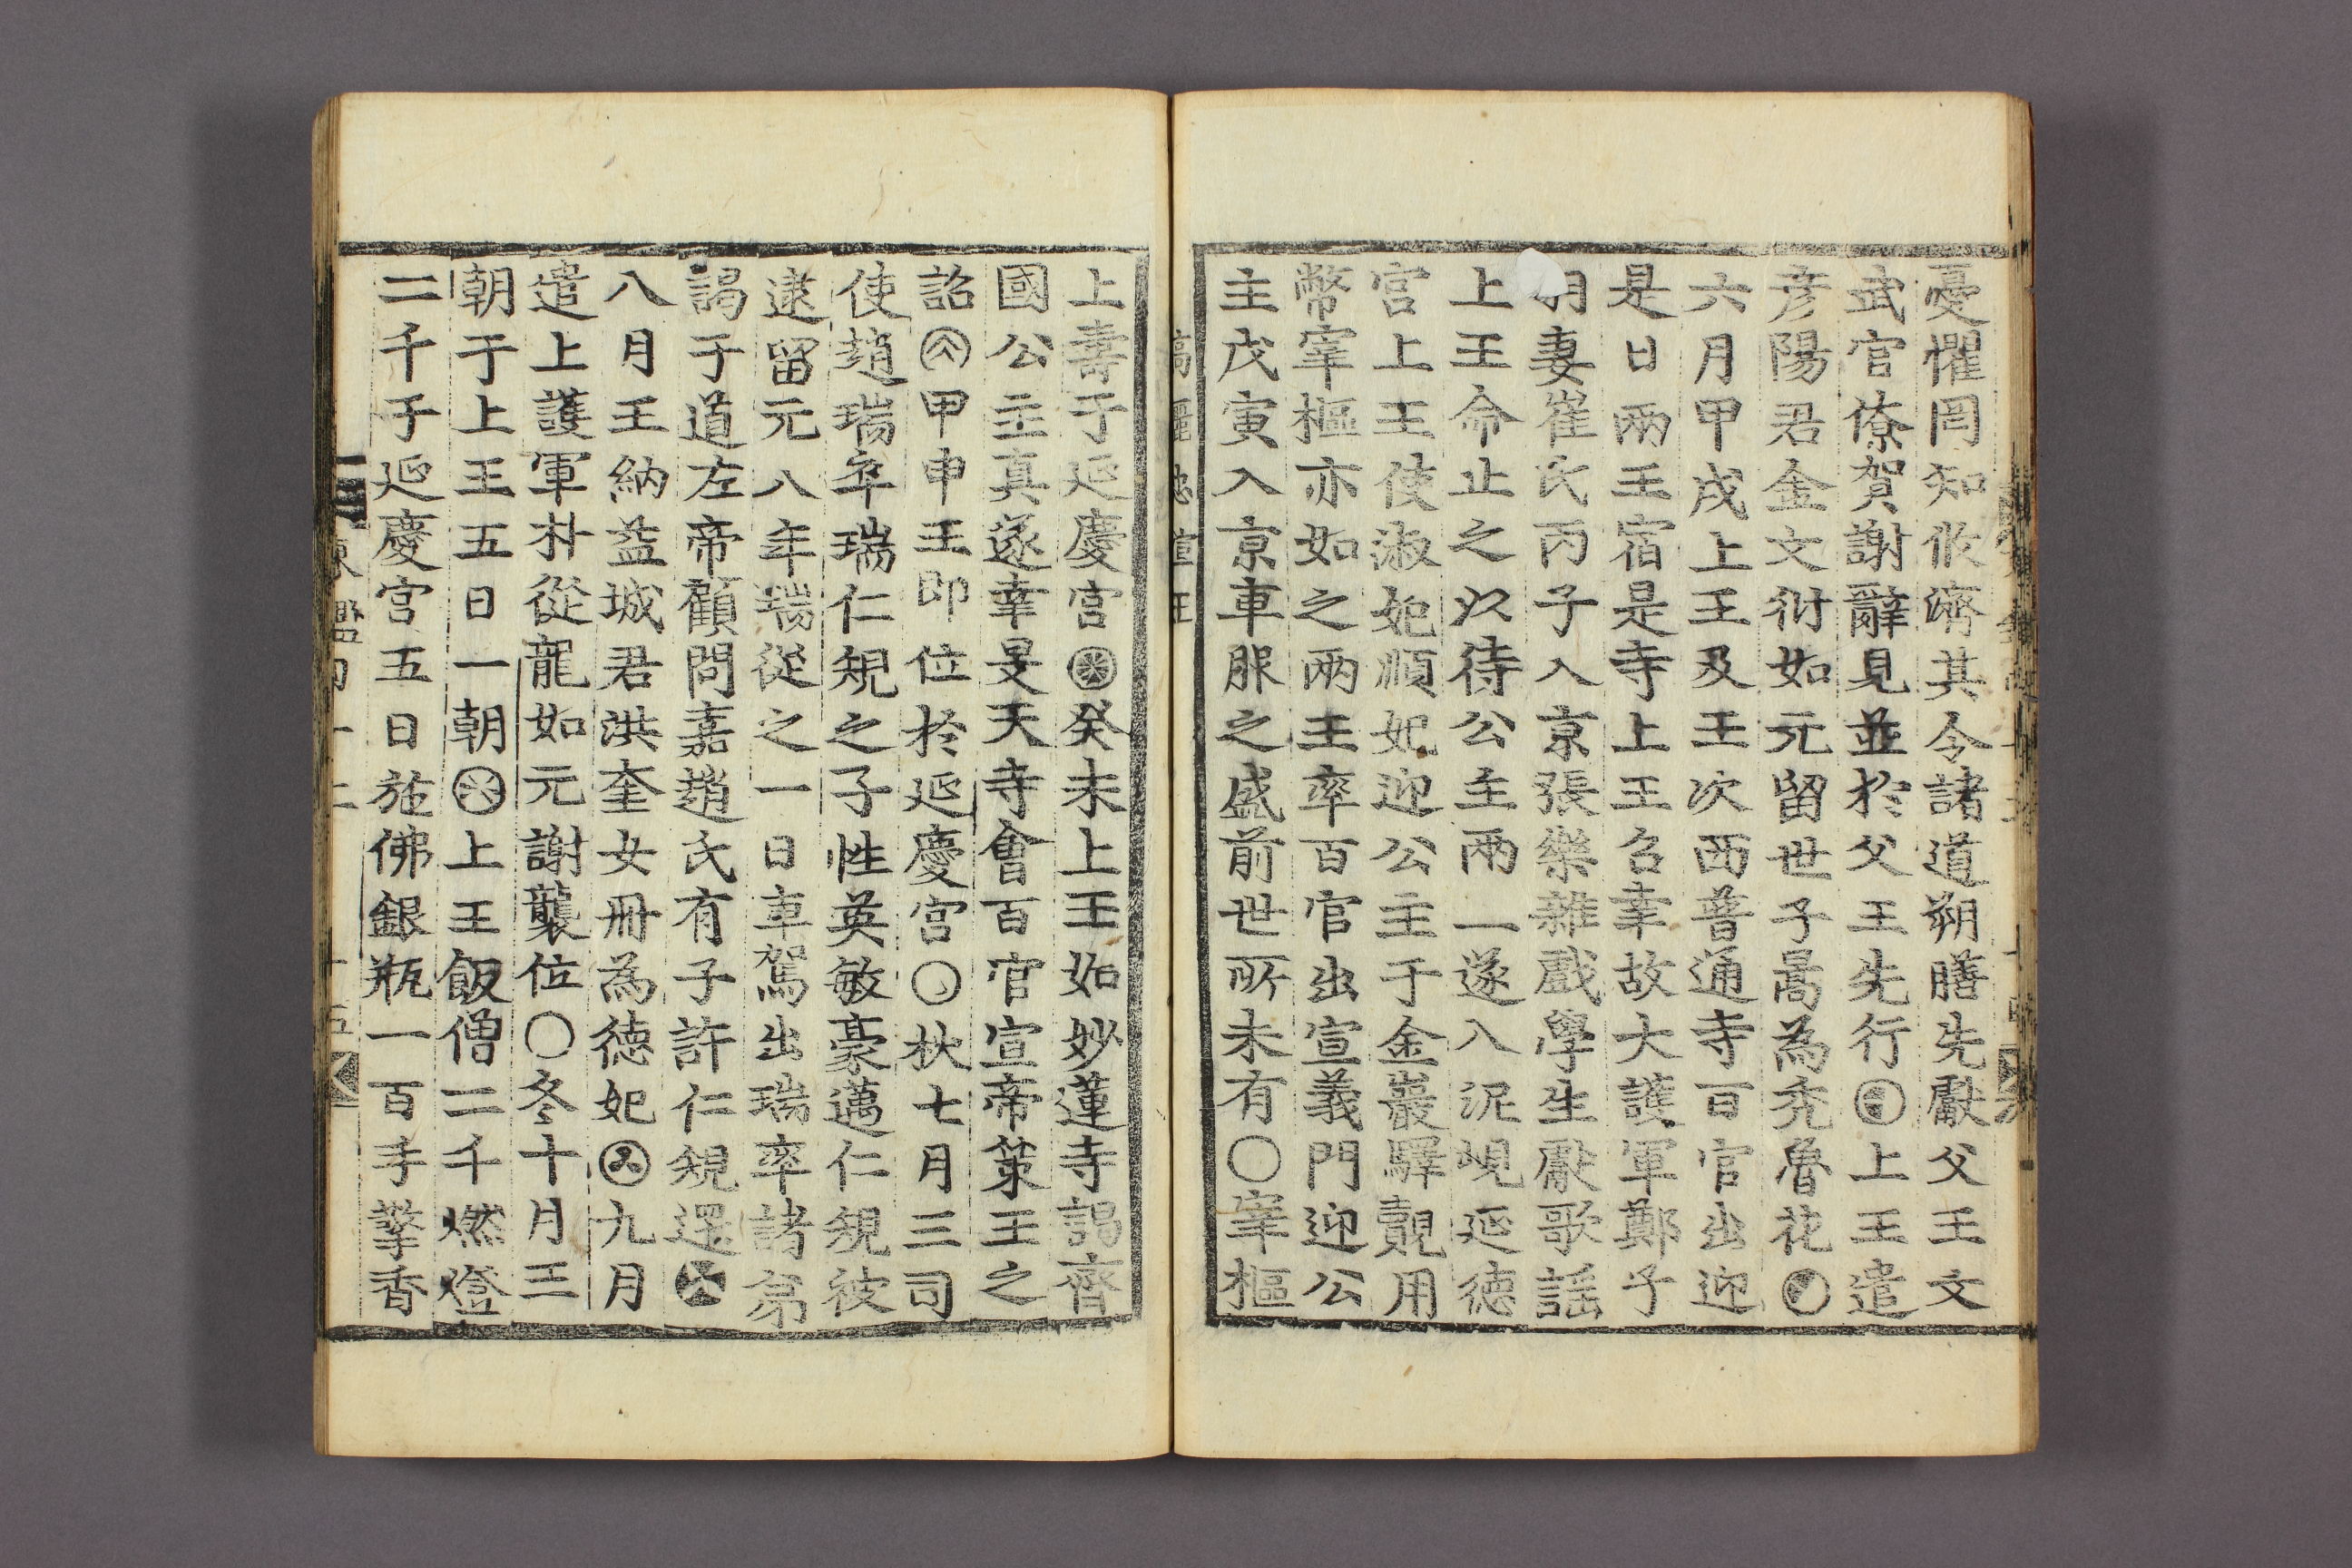 憂懼罔知攸濟其令諸道朔膳先獻父王文
武官僚賀謝辭見並於父王先行上王遣
彦陽君金文衍如元留世子暠為禿魯花
六月甲戌上王及王次西普通寺百官出迎
是日兩王宿是寺上王召幸故大護軍鄭子
羽妻崔氏丙子入京張樂雜戲學生獻歌謡
上王命止之以待公主兩一遂入泥峴延徳
宮上王使淑妃順妃迎公主于金巖驛覿用
幣宰樞亦如之兩王率百官出宣義門迎公
主戊寅入京車服之盛前世所未有〇宰樞
高麗忠宣王
上壽于延慶宮癸未上王如妙蓮寺謁齊
國公主真遂幸旻天寺會百官宣帝策王之
詔甲申王即位於延慶宮〇秋七月三司
使趙瑞卒瑞仁規之子性英敏豪邁仁規被
逮留元八年瑞從之一日車駕出瑞率諸弟
謁于道左帝顧問嘉趙氏有子許仁規還
八月王納益城君洪奎女冊為徳妃九月
遣上護軍朴從龍如元謝襲位〇冬十月王
朝于上王五日一朝上王飯僧二千燃燈
二千于延慶宮五日施佛銀瓶一百手擎香